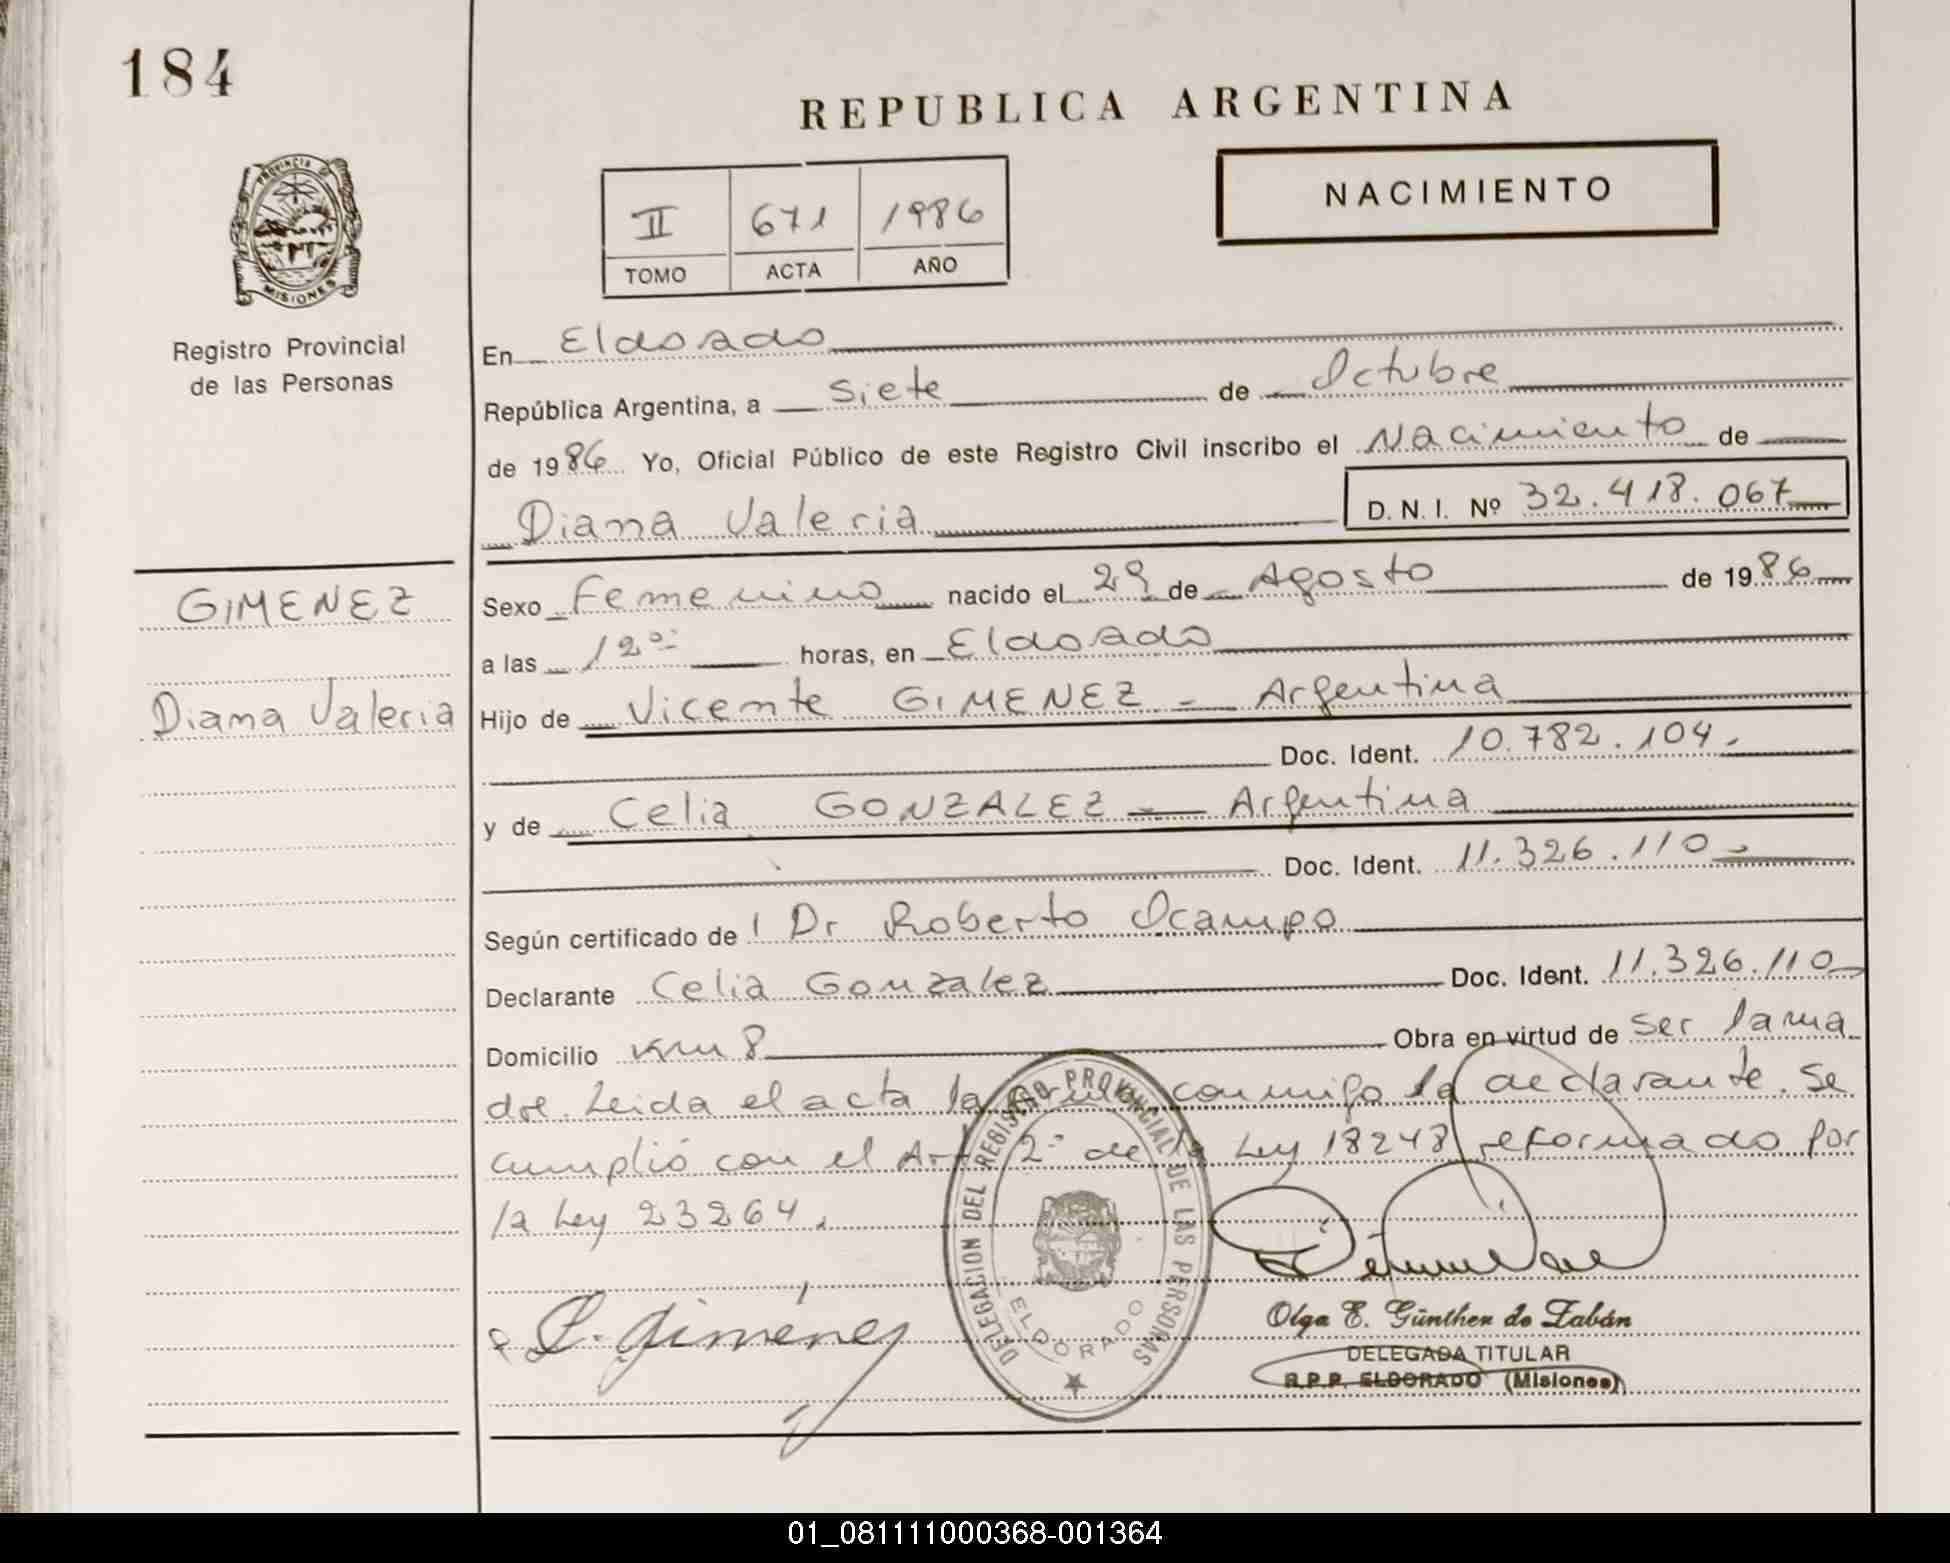 184
REPUBLICA ARGENTINA
NACIMIENTO
II 671 1986
TOMO ACTA AÑO
PROVINCIA DE
MISIONES
Registro Provincial
de las Personas
En Eldorado
República Argentina, a siete de Octubre
de 1986 Yo, Oficial Público de este Registro Civil inscribo el Nacimiento de
Diana Valeria D. N. I. Nº 32.418.067
GIMENEZ
Diana Valeria
Sexo Femenino nacido el 29 de Agosto de 1986
a las 12⁰⁰ horas, en Eldorado
Hijo de Vicente GIMENEZ - Argentina
Doc. Ident. 10.782.104.
y de Celia GONZALEZ - Argentina
Doc. Ident. 11.326.110
Según certificado de Dr Roberto Ocampo
Declarante Celia Gonzalez Doc. Ident. 11.326.110
Domicilio Km 8 Obra en virtud de ser la ma
dre. Leida el acta la firma conmigo la declarante. Se
cumplió con el Art 2º de la Ley 18248 reformado por
la Ley 23264.
DELEGACION DEL REGISTRO PROVINCIAL DE LAS PERSONAS
ELDORADO
Olga E. Günther de Zabán
DELEGADA TITULAR
R.P.P. ELDORADO (Misiones)
01_081111000368-001364